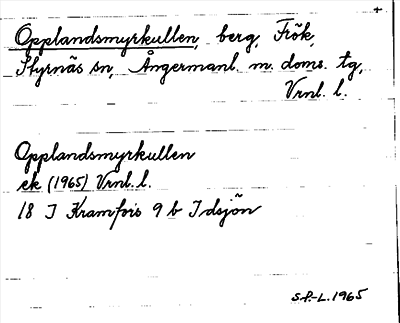 Opplandsmyrkullen, berg, Frök,
Styrnäs sn, Ångermanl. m. doms. tg,
Vrnl. l.
Opplandsmyrkullen
ek (1965) Vrnl. l.
18 I Kramfors 9 b Idsjön
S.P.-L. 1965